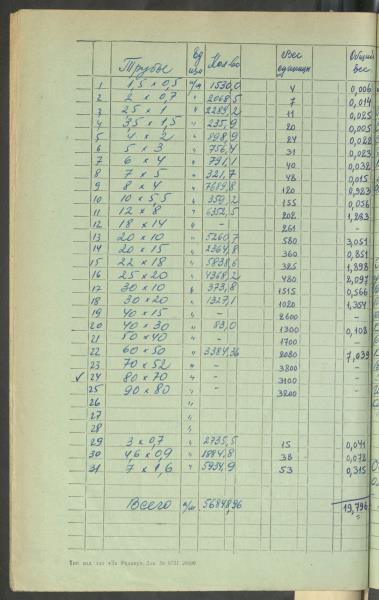 Трубы Ед изм Кол-во Вес единицы Общий вес
1 1,5 x 0,5 п/м 1530,0 4 0,006
2 2 x 0,7 " 2068,5 7 0,014
3 25 x 1 " 2289,2 11 0,025
4 35 x 1,5 " 235,9 20 0,005
5 4 x 2 " 898,9 24 0,022
6 5 x 3 " 756,4 31 0,023
7 6 x 4 " 791,1 40 0,032
8 7 x 5 " 321,7 48 0,015
9 8 x 4 " 7689,8 120 0,923
10 10 x 5,5 " 359,2 155 0,056
11 12 x 8 " 6352,5 202 1,283
12 18 x 14 " - 261 -
13 20 x 10 " 5260,7 580 3,051
14 20 x 15 " 2364,8 360 0,851
15 22 x 18 " 5838,6 325 1,898
16 25 x 20 " 4368,2 480 2,097
17 30 x 10 " 373,8 1515 0,566
18 30 x 20 " 1327,1 1020 1,354
19 40 x 15 " - 2600 -
20 40 x 30 " 83,0 1300 0,108
21 50 x 40 " - 1700 -
22 60 x 50 " 3384,36 2080 7,039
23 70 x 52 " - 3800 -
24 80 x 70 " - 3100 -
25 90 x 80 " - 3200 -
26 "
27 "
28 "
29 3 x 0,7 " 2735,5 15 0,041
30 4,6 x 0,9 " 1884,8 38 0,072
31 7 x 1,6 " 5934,9 53 0,315
Всего п/м. 56848,96 19,796